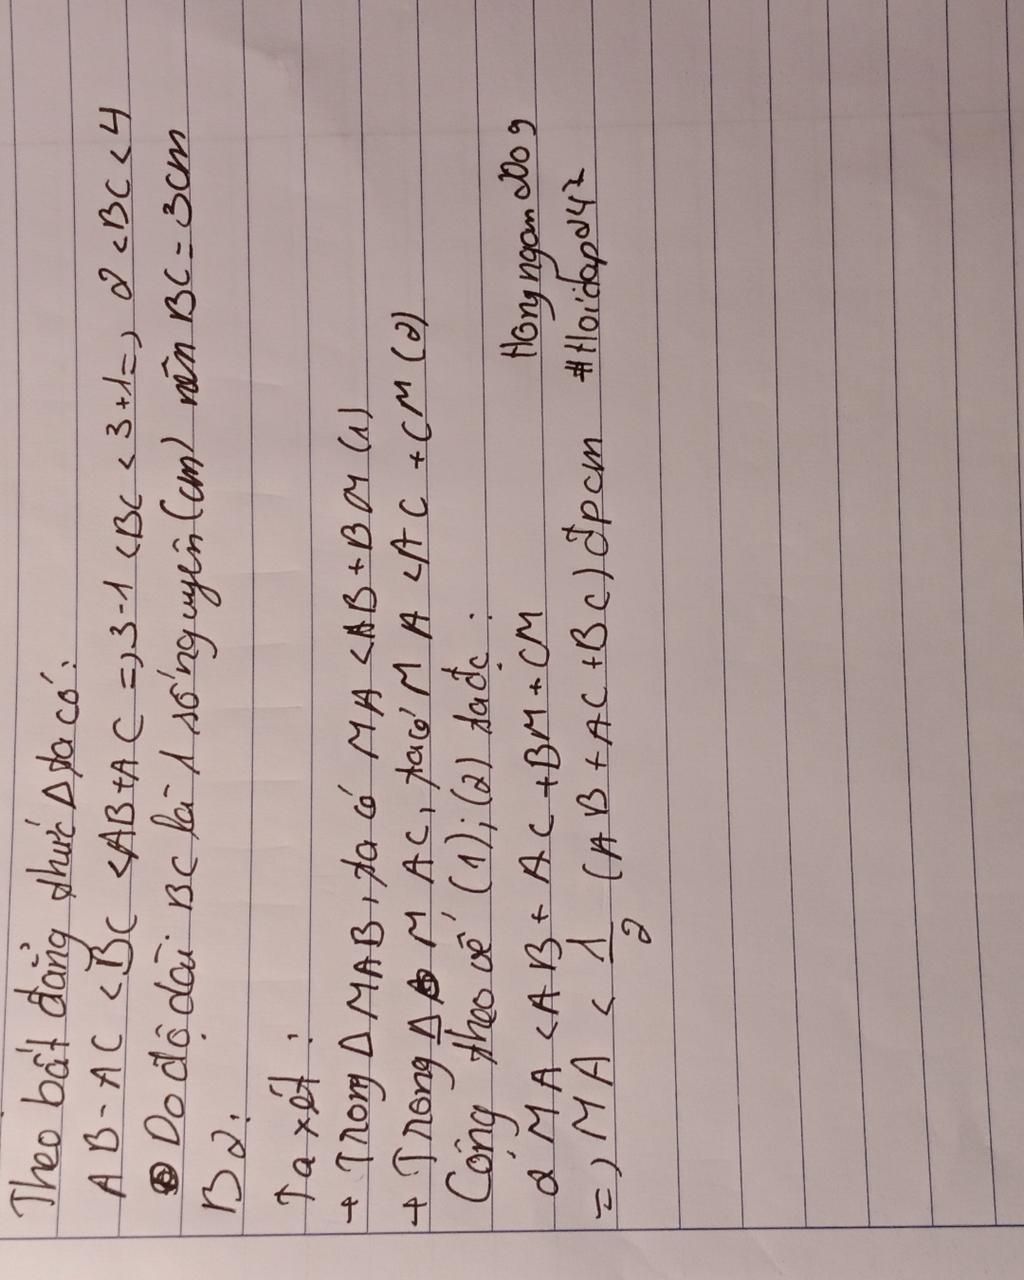 Theo bất đẳng thức Δ ta có:
AB-AC < BC < AB+AC =, 3-1 < BC < 3+1 =, 2 < BC < 4
Do độ dài BC là 1 số nguyên (cm) nên BC = 3cm
B2:
Ta xét:
+ Trong Δ MAB, ta có MA < AB + BM (1)
+ Trong Δ MAC, ta có MA < AC + CM (2)
Cộng theo vế (1); (2) ta đc:
2MA < AB + AC + BM + CM
Hongngan2009
=, MA < 1/2 (AB + AC + BC) đpcm
#Hoidap247